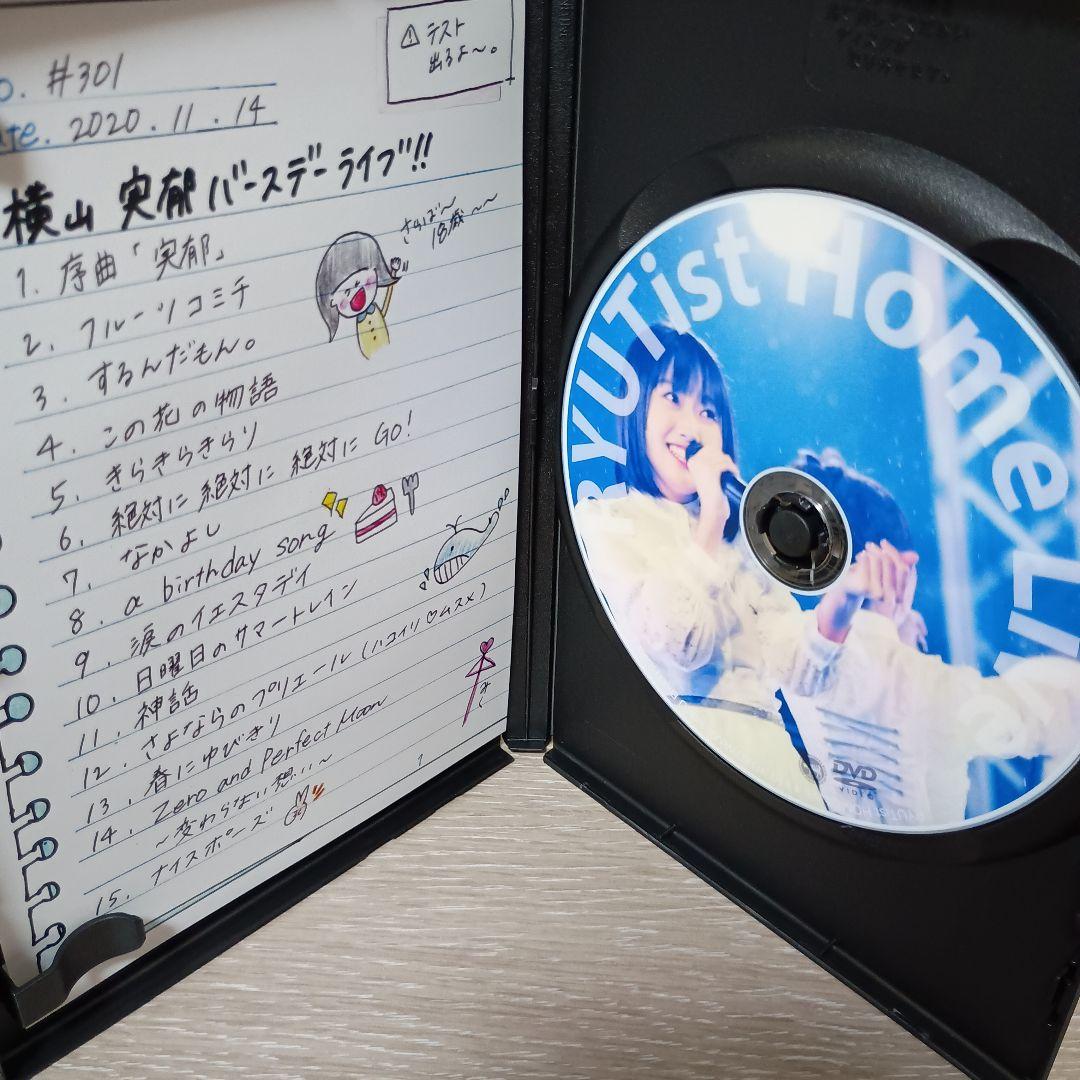 o. #301
ate. 2020.11.14
⚠ テスト
出るよ〜。
横山 実郁 バースデーライブ!!
さらば〜
18歳〜〜
1. 序曲「実郁」
2. フルーツコミチ
3. するんだもん。
4. この花の物語
5. きらきらきらり
6. 絶対に 絶対に 絶対に GO!
7. なかよし
8. a birthday song
9. 涙のイエスタデイ
10. 日曜日のサマートレイン
11. 神話
12. さよならのプリエール(ハコイリ♡ムスメ)
13. 春にゆびきり
14. Zero and Perfect Moon
〜変わらない想い〜
15. ナイスポーズ
RYUTist Home Li
DVD
VIDEO